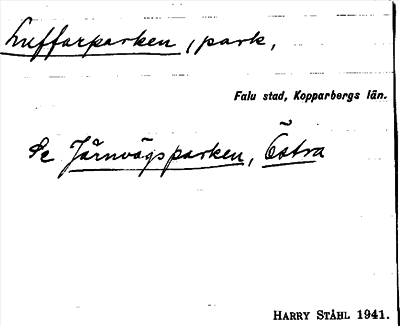 Luffarparken, park,
Falu stad, Kopparbergs län.
Se Järnvägsparken, Östra
HARRY STÅHL 1941.